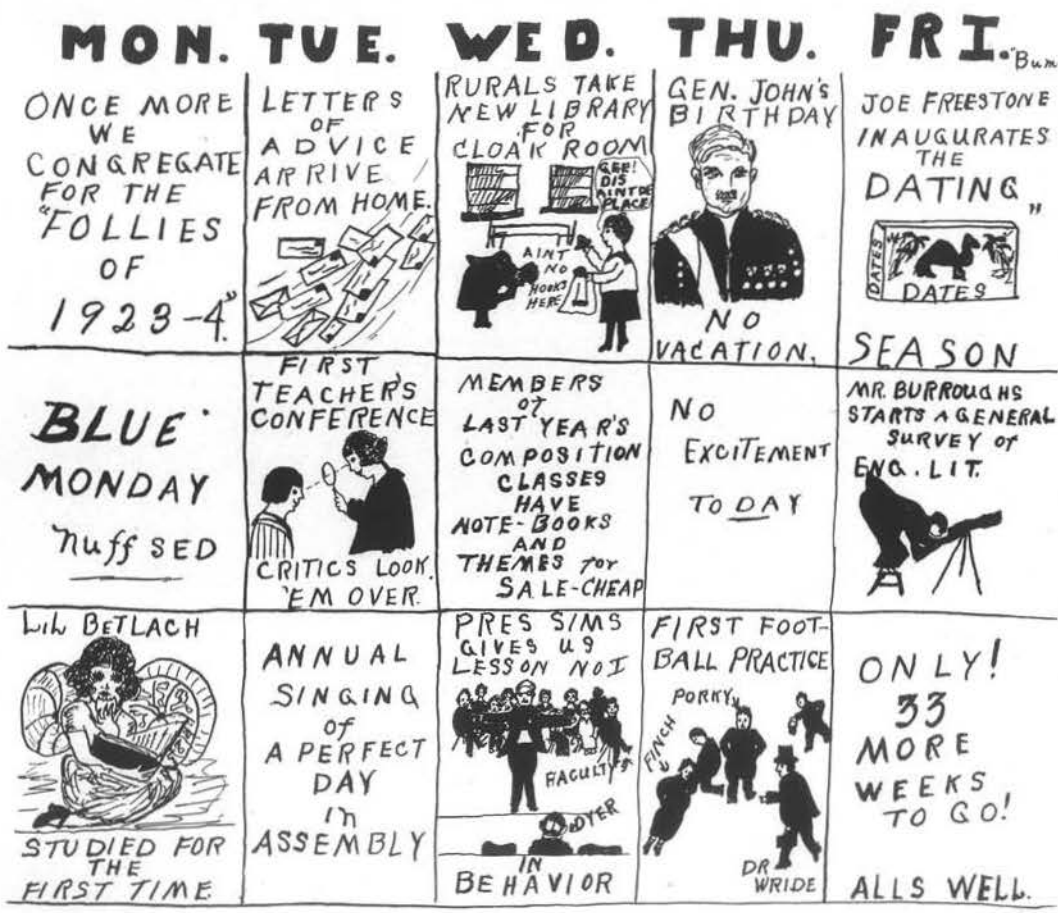 MON. TUE. WED. THU. FRI. "Bum
ONCE MORE
WE
CONGREGATE
FOR THE
"FOLLIES
OF
1923-4."
LETTERS
OF
ADVICE
ARRIVE
FROM HOME.
RURALS TAKE
NEW LIBRARY
FOR
CLOAK ROOM
GEE!
DIS
AINT DE
PLACE
AINT
NO
HOOKS
HERE
GEN. JOHN'S
BIRTHDAY
NO
VACATION.
JOE FREESTONE
INAUGURATES
THE
DATING"
DATES
DATES
SEASON
BLUE
MONDAY
nuff SED
FIRST
TEACHER'S
CONFERENCE
CRITICS LOOK
'EM OVER.
MEMBERS
of
LAST YEAR'S
COMPOSITION
CLASSES
HAVE
NOTE-BOOKS
AND
THEMES for
SALE-CHEAP
NO
EXCITEMENT
TODAY
MR. BURROUGHS
STARTS A GENERAL
SURVEY of
ENG. LIT.
LIL BETLACH
STUDIED FOR
THE
FIRST TIME
ANNUAL
SINGING
of
A PERFECT
DAY
in
ASSEMBLY
PRES SIMS
GIVES US
LESSON NO I
FACULTY
DYER
IN
BEHAVIOR
FIRST FOOT-
BALL PRACTICE
PORKY
FINCH
DR
WRIDE
ONLY!
33
MORE
WEEKS
TO GO!
ALLS WELL.